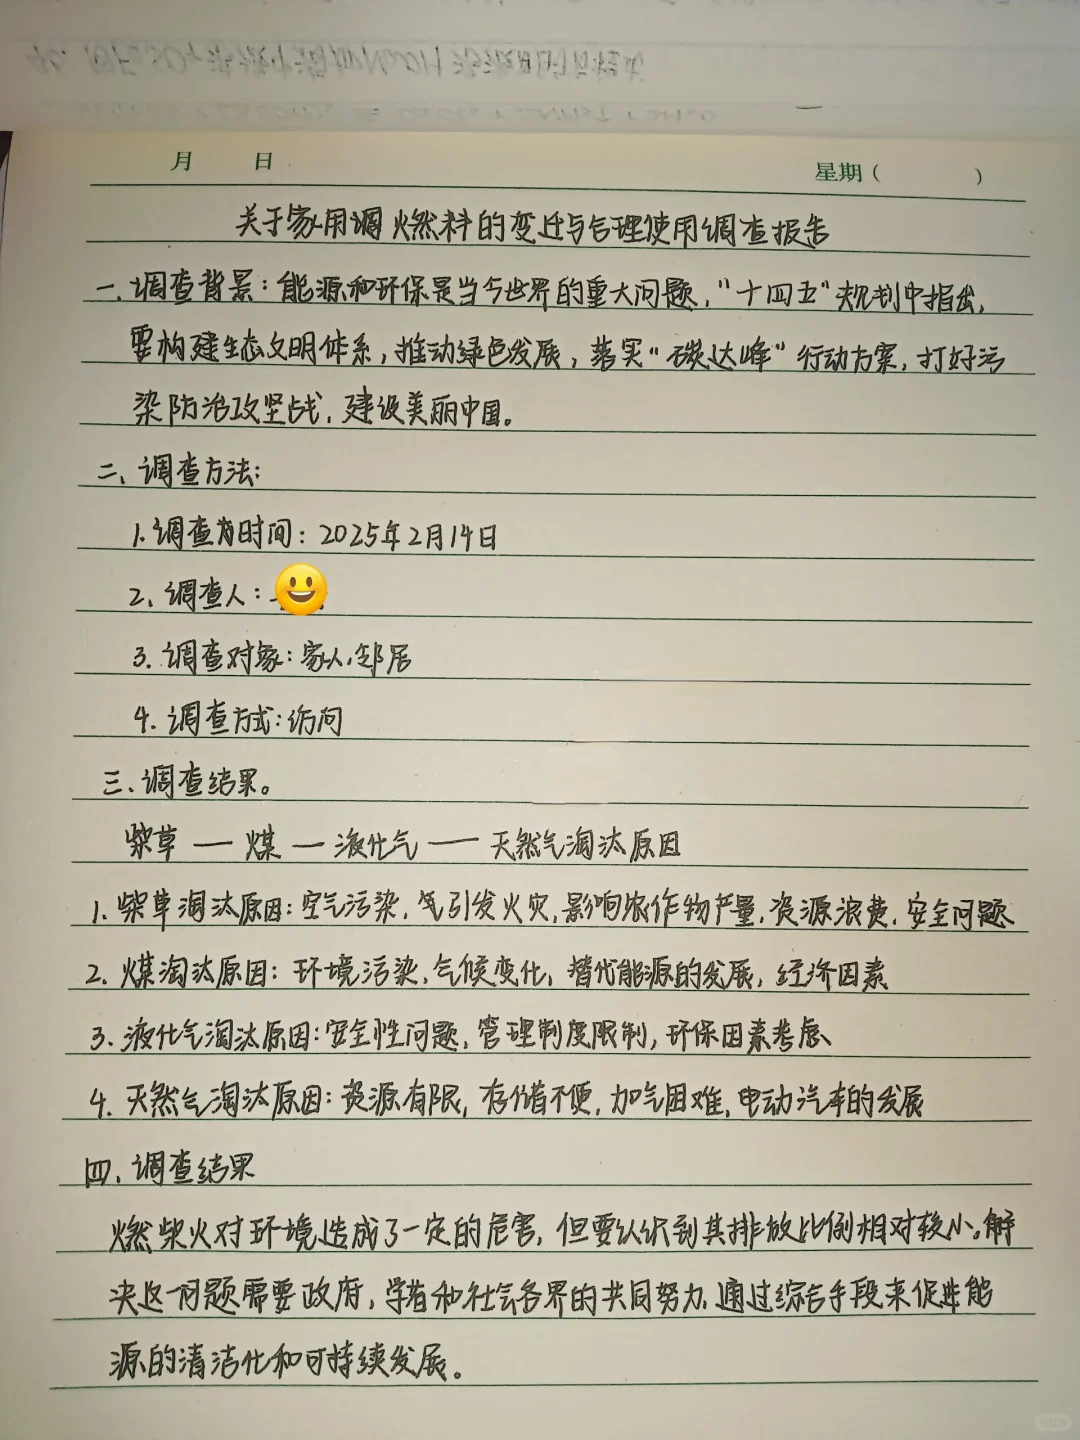 月 日
星期( )
关于家用调燃料的变迁与合理使用调查报告
一、调查背景：能源和环保是当今世界的重大问题，“十四五”规划中指出，
要构建生态文明体系，推动绿色发展，落实“碳达峰”行动方案，打好污
染防治攻坚战，建设美丽中国。
二、调查方法：
1.调查时间：2025年2月14日
2、调查人：
3.调查对象：家人、邻居
4.调查方式：访问
三、调查结果。
柴草 — 煤 — 液化气 — 天然气淘汰原因
1.柴草淘汰原因：空气污染，气引发火灾，影响农作物产量，资源浪费，安全问题
2.煤淘汰原因：环境污染，气候变化，替代能源的发展，经济因素
3.液化气淘汰原因：安全性问题，管理制度限制，环保因素考虑
4.天然气淘汰原因：资源有限，存储不便，加气困难，电动汽车的发展
四、调查结果
燃柴火对环境造成了一定的危害，但要认识到其排放比例相对较小。解
决这一问题需要政府，学者和社会各界的共同努力，通过综合手段来促进能
源的清洁化和可持续发展。